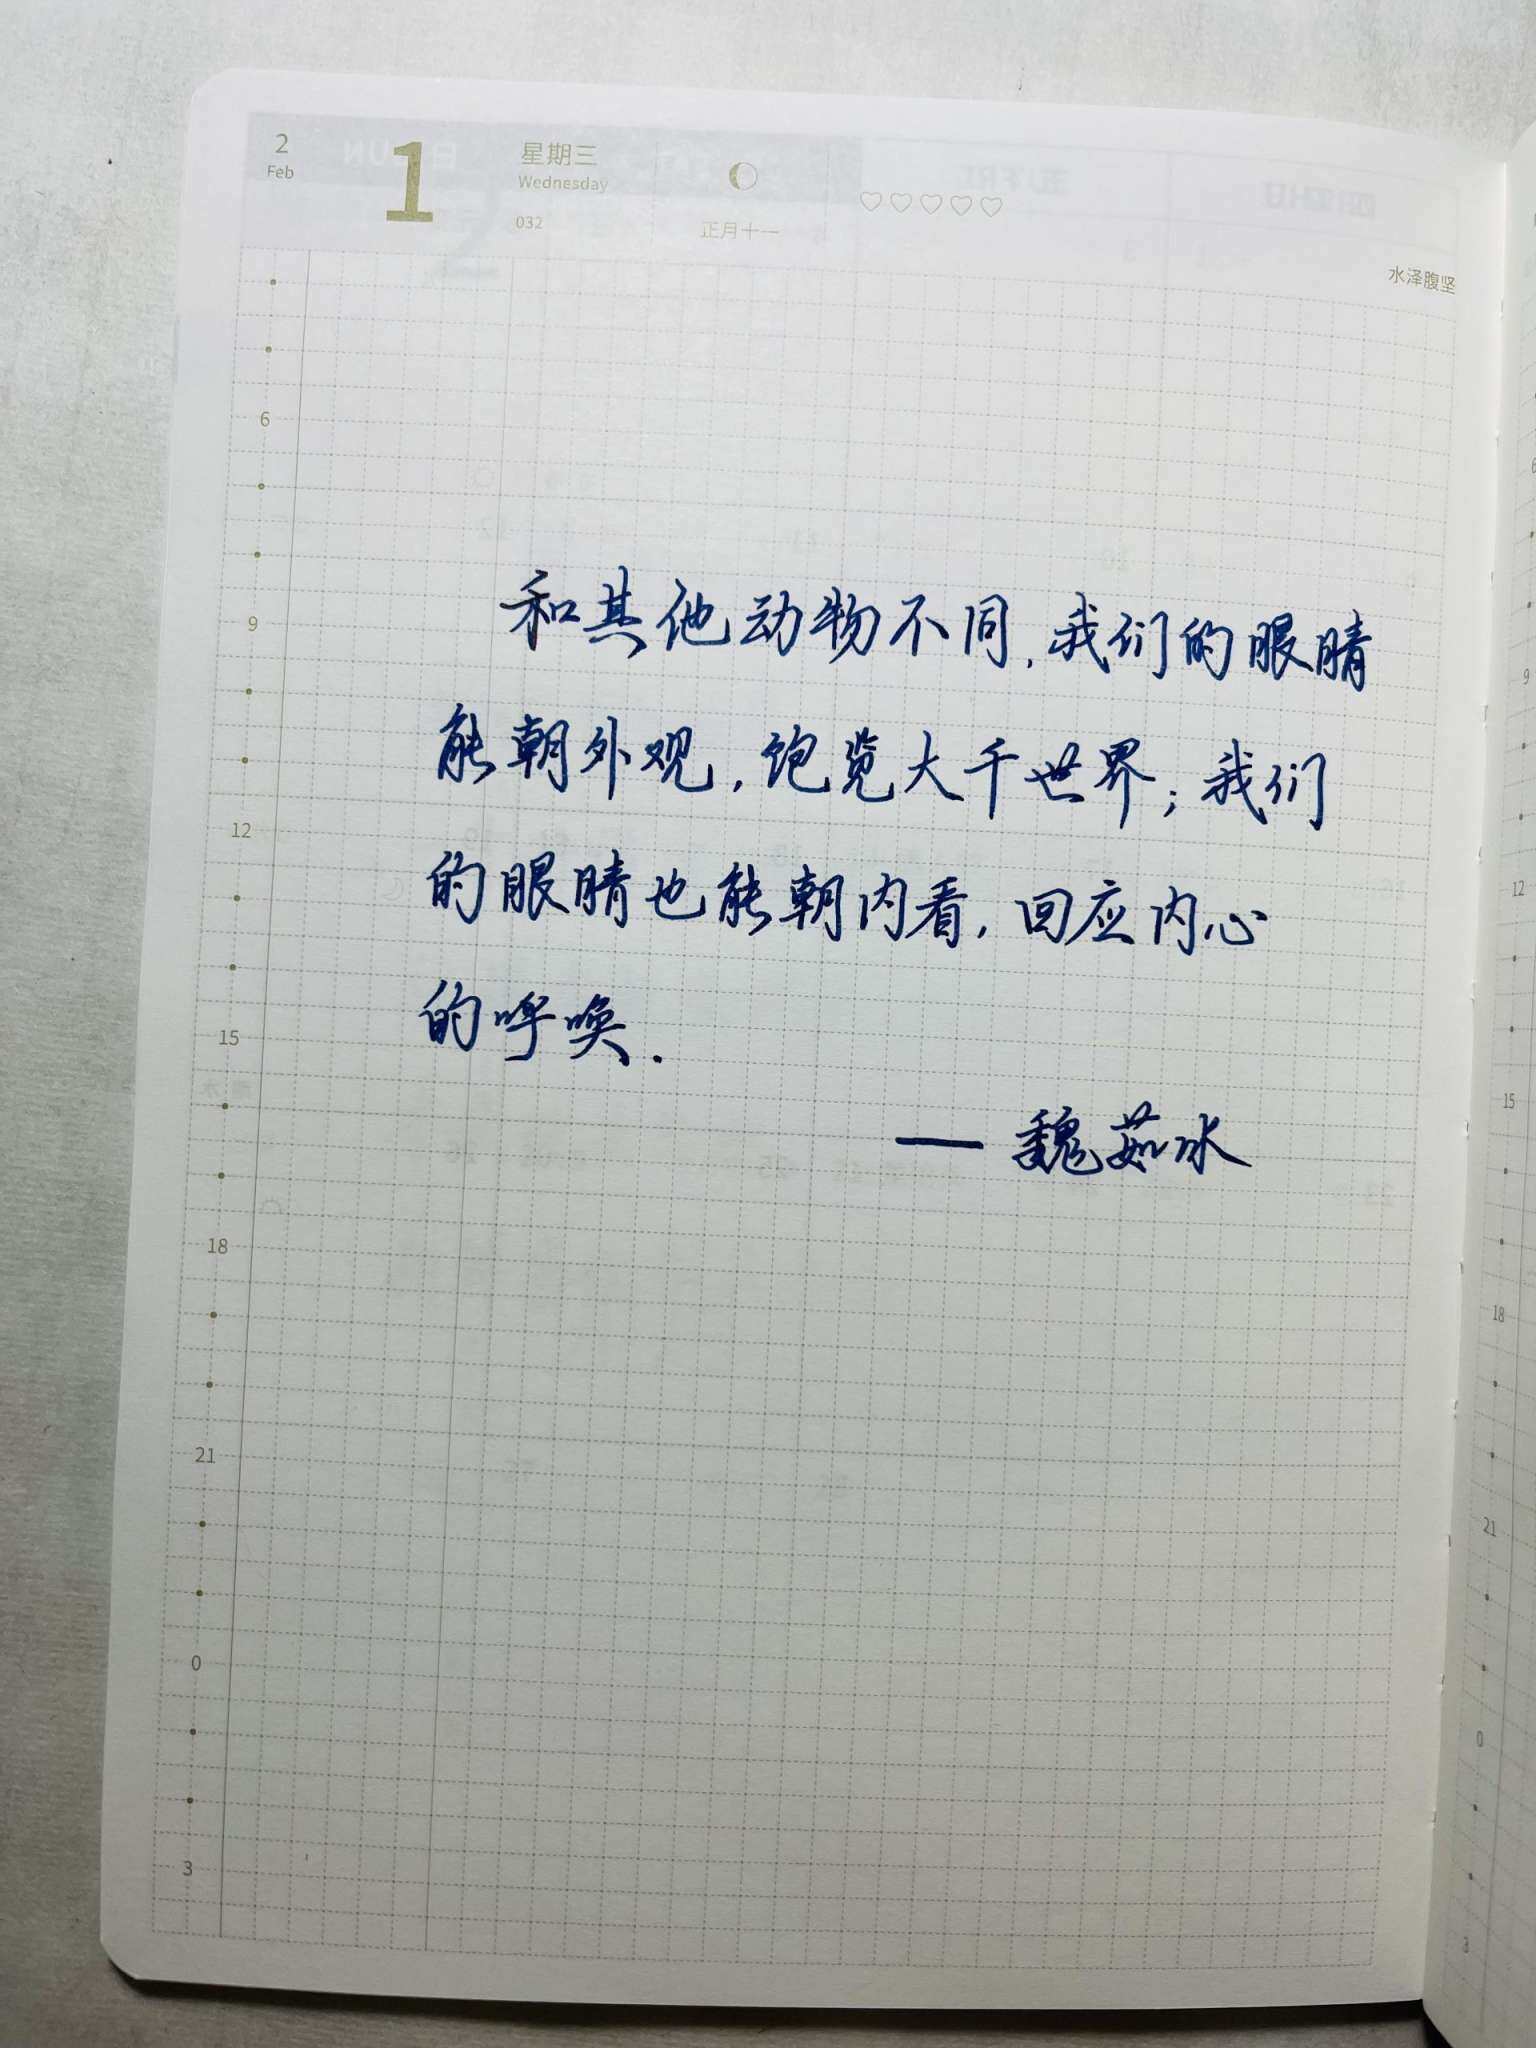 2
Feb
1
星期三
Wednesday
032
正月十一
水泽腹坚
和其他动物不同,我们的眼睛
能朝外观,饱览大千世界;我们
的眼睛也能朝内看,回应内心
的呼唤.
——魏茹冰
6
9
12
15
18
21
0
3
6
9
12
15
18
21
0
3